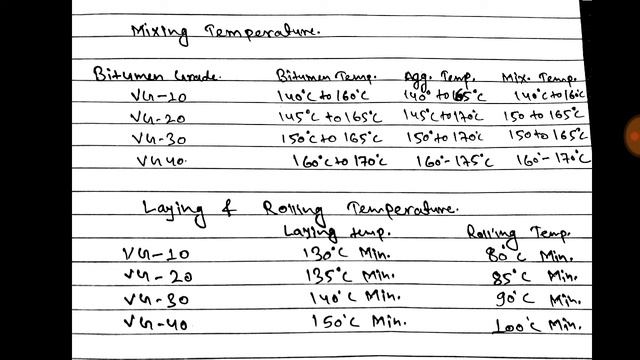 Mixing Temperature.
Bitumen Grade. Bitumen Temp. Agg. Temp. Mix. Temp.
VG-10 140°C to 160°C 140° to 165°C 140°C to 160°C
VG-20 145°C to 165°C 145°C to 170°C 150 to 165°C
VG-30 150°C to 165°C 150° to 170°C 150 to 165°C
VG 40. 160°C to 170°C 160°-175°C 160°-170°C
Laying & Rolling Temperature.
Laying temp. Rolling Temp.
VG-10 130°C Min. 80°C Min.
VG-20 135°C Min. 85°C Min.
VG-30 140°C Min. 90°C Min.
VG-40 150°C Min. 100°C Min.